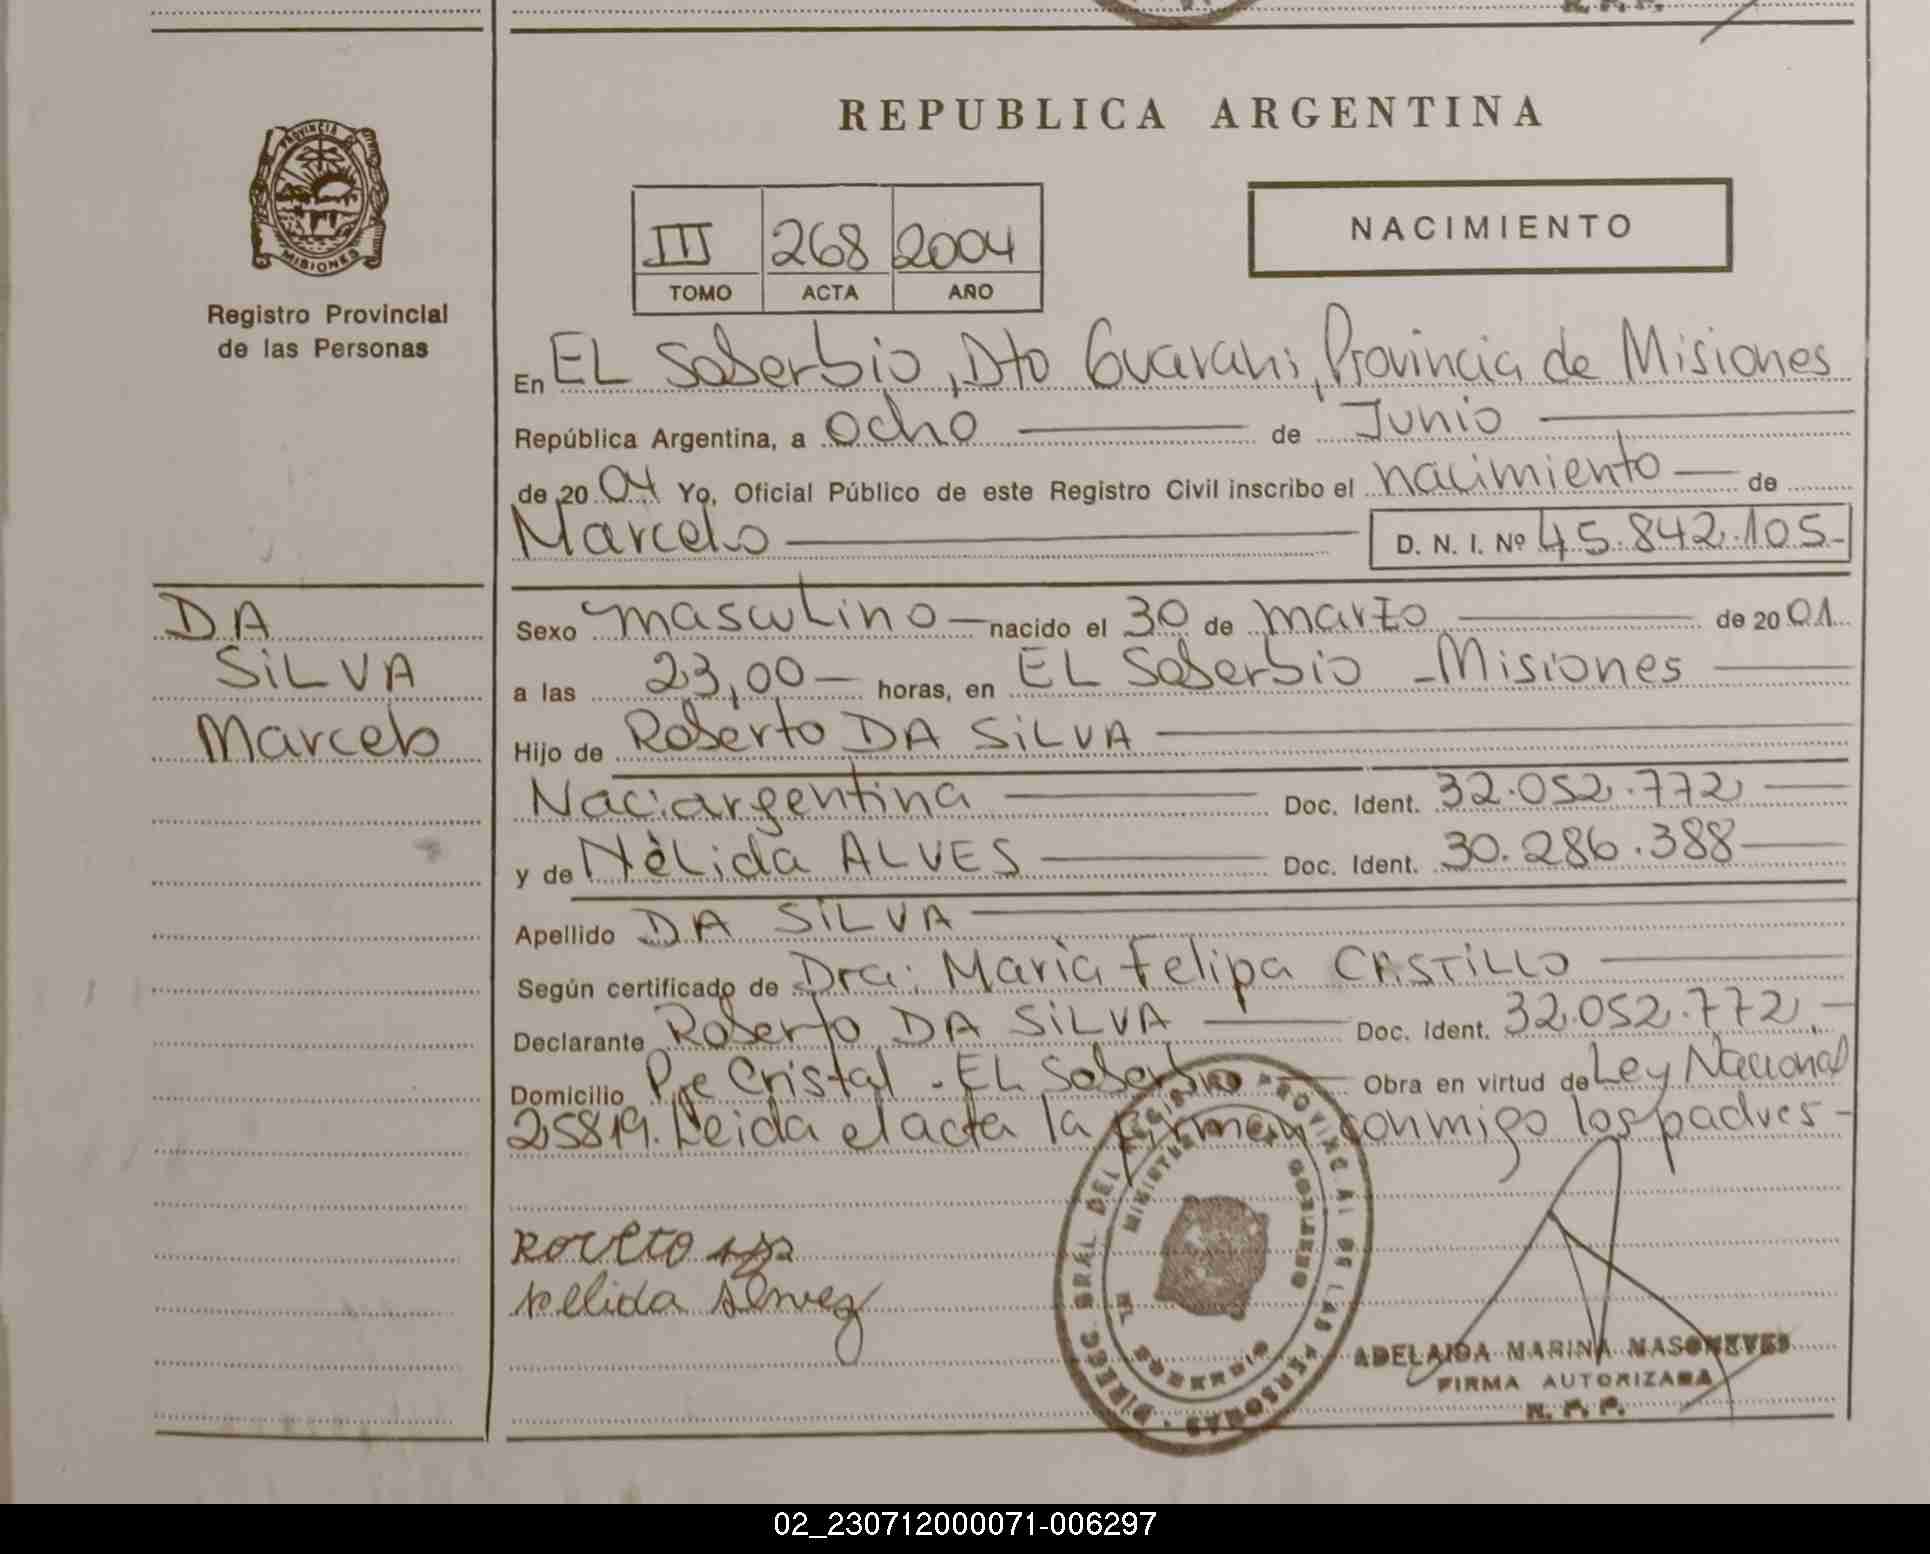 REPUBLICA ARGENTINA
PROVINCIA DE MISIONES
Registro Provincial
de las Personas
III 268 2004
TOMO ACTA AÑO
NACIMIENTO
En EL Soberbio, Dto Guarani, Provincia de Misiones
República Argentina, a ocho de Junio
de 2004 Yo, Oficial Público de este Registro Civil inscribo el nacimiento de
Marcelo D. N. I. Nº 45.842.105
DA
SILVA
Marcelo
Sexo masculino nacido el 30 de marzo de 2001
a las 23,00 horas, en EL Soberbio - Misiones
Hijo de Roberto DA SILVA
Nac: argentina Doc. Ident. 32.052.772
y de Nèlida ALVES Doc. Ident. 30.286.388
Apellido DA SILVA
Según certificado de Dra: Maria Felipa CASTILLO
Declarante Roberto DA SILVA Doc. Ident. 32.052.772
Domicilio Pje Cristal - EL Soberbio Obra en virtud de Ley Nacional
25819. Leida el acta la firman conmigo los padres
Rovelto
nelida Alvez
DIREC. GRAL. DEL REGISTRO PROVINCIAL DE LAS PERSONAS
MISIONES
ADELAIDA MARINA MASONEVES
FIRMA AUTORIZADA
R. P. P.
02_230712000071-006297